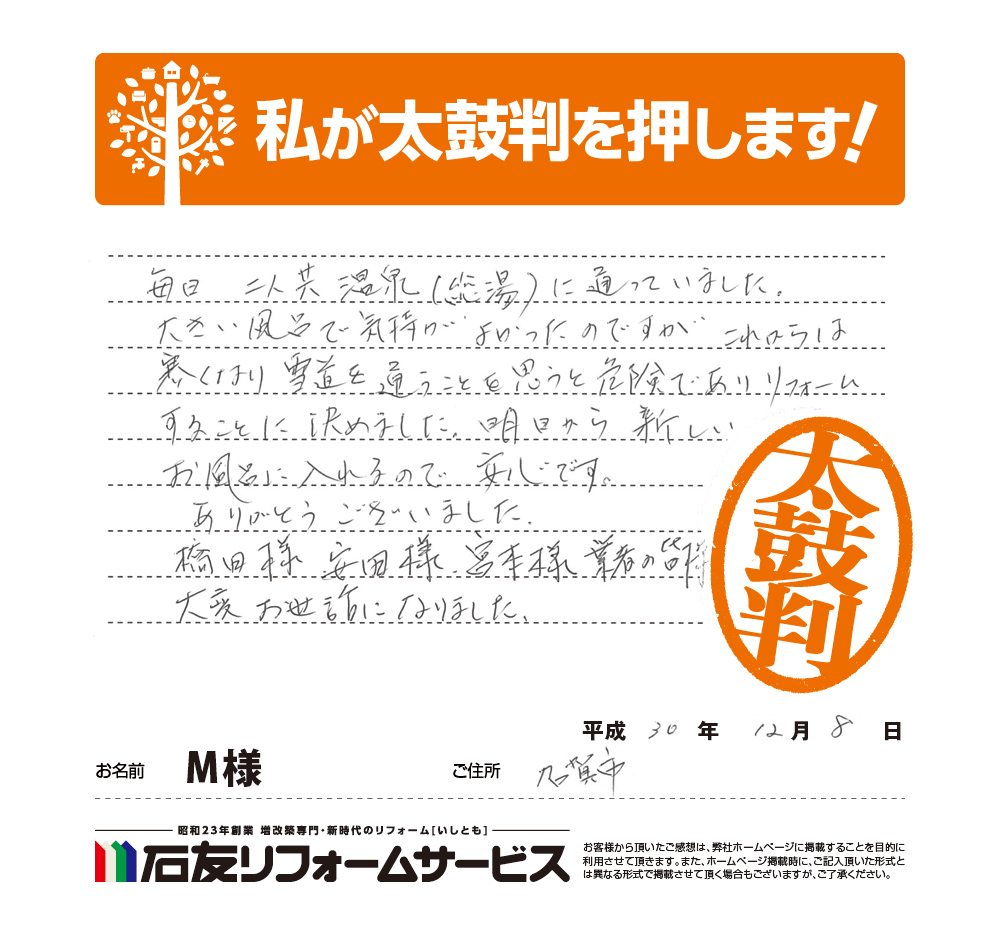 私が太鼓判を押します!
毎日 二人共 温泉(総湯)に通っていました。
大きい風呂で気持が よかったのですが これからは
寒くなり 雪道を通うことを思うと危険であり リフォーム
することに決めました。明日から 新しい
お風呂に入れるので 安心です。
ありがとう ございました。
橋田様 安田様 宮本様 業者の皆様
大変 お世話になりました。
太鼓判
平成 30 年 12 月 8 日
お名前 M様 ご住所 加賀市
昭和23年創業 増改築専門・新時代のリフォーム[いしとも]
石友リフォームサービス
お客様から頂いたご感想は、弊社ホームページに掲載することを目的に
利用させて頂きます。また、ホームページ掲載時に、ご記入頂いた形式と
は異なる形式で掲載させて頂く場合もございますが、ご了承ください。